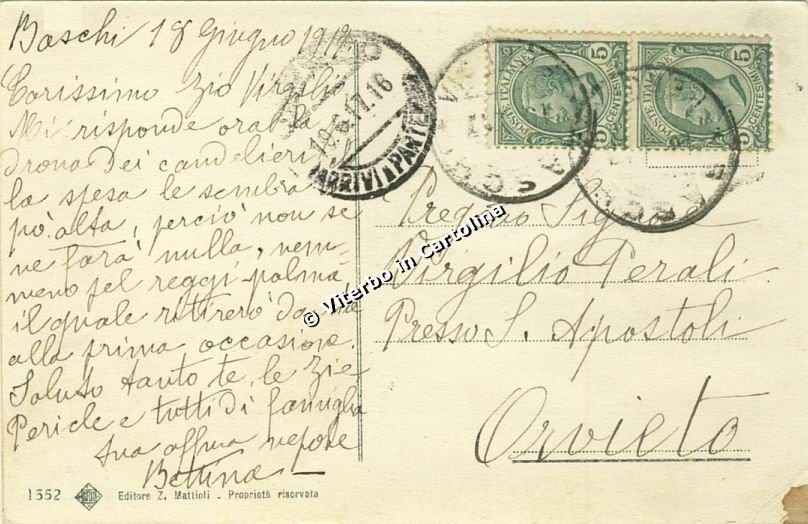 Baschi 18 Giugno 1912
Carissimo Zio Virgilio
Mi risponde ora la
drona dei candelieri
la spesa le sembra
po' alta, perciò non se
ne farà nulla, nem-
meno pel reggi-palma
il quale ritirerò da me
alla prima occasione.
Saluto tanto te, le Zie
Pericle e tutti di famiglia
tua affma nepote
Bettina
1352 Editore Z. Mattioli - Proprietà riservata
ARRIVI E PARTENZE
POSTE ITALIANE
CENTESIMI
5
5
POSTE ITALIANE
CENTESIMI
5
5
Pregmo Signor
Virgilio Perali
Presso S. Apostoli
Orvieto
© Viterbo in Cartolina